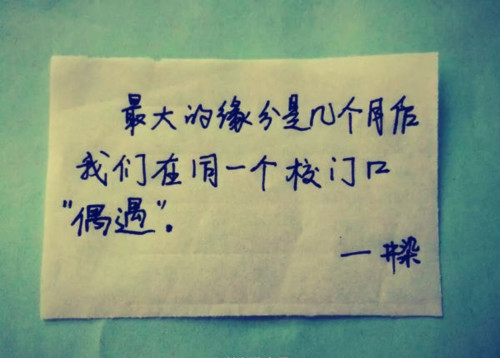 最大的缘分是几个月后
我们在同一个校门口
"偶遇"。
—井染